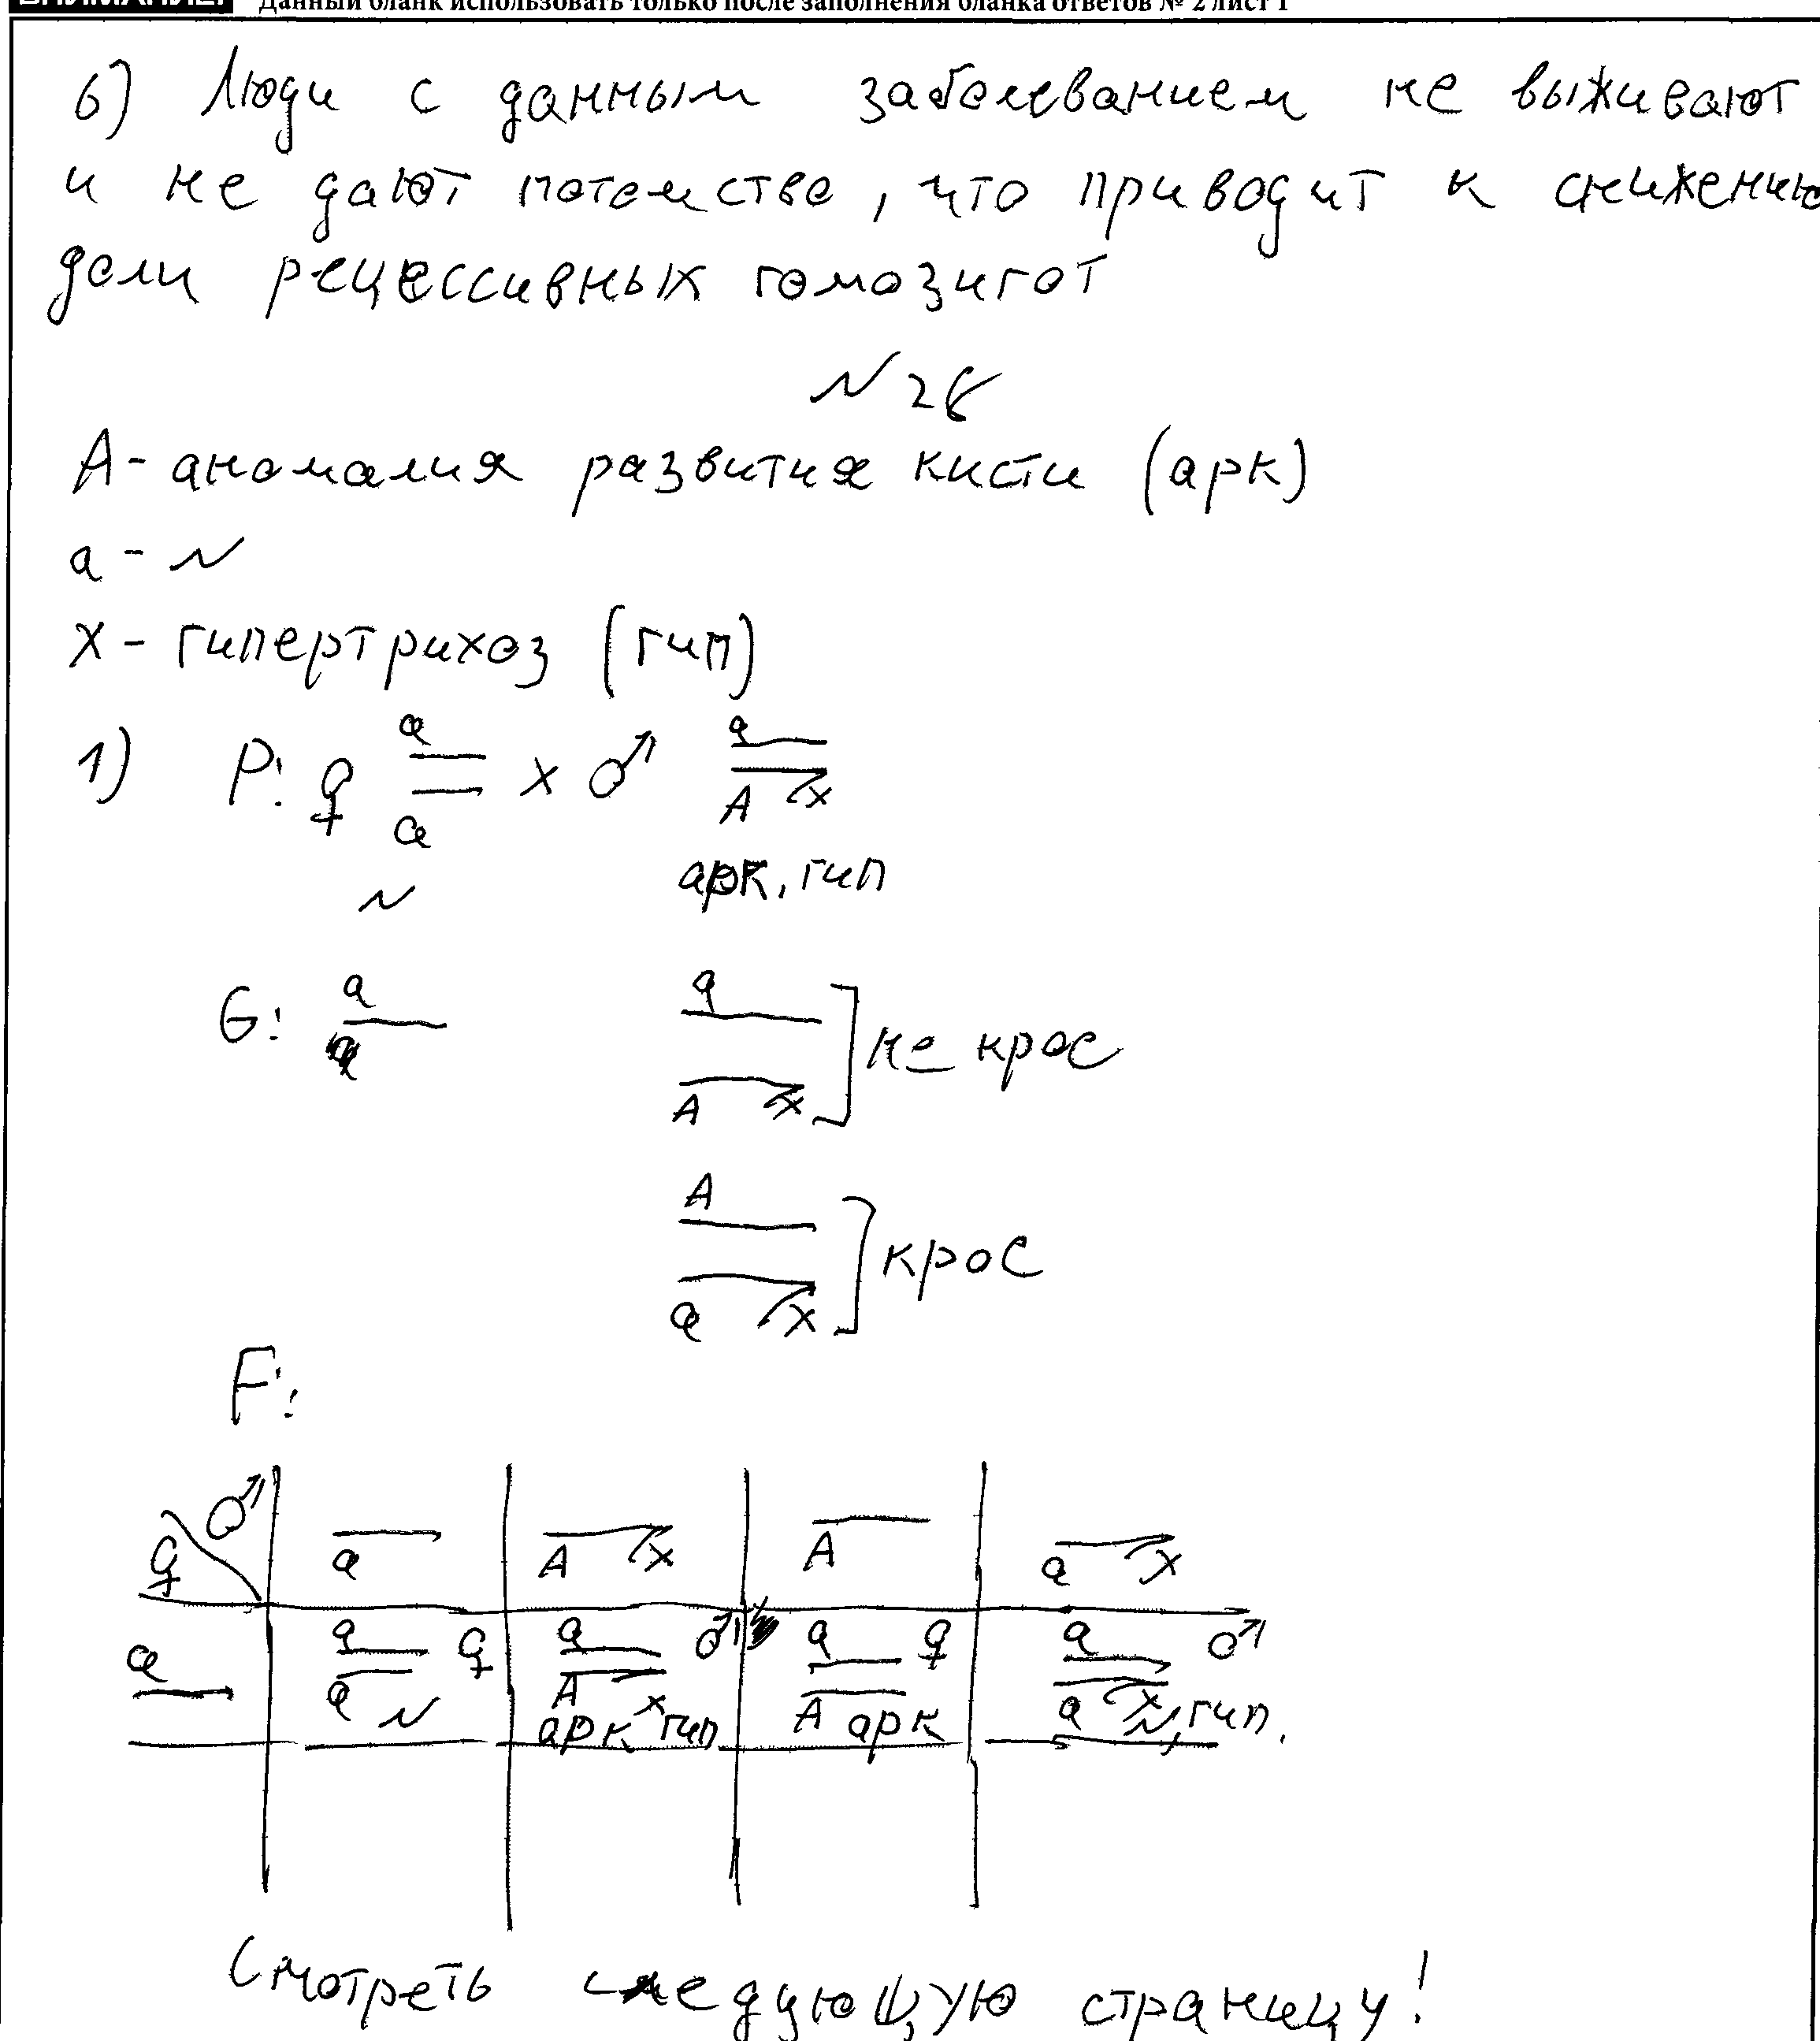 Данный бланк использовать только после заполнения бланка ответов № 2 лист 1
6) Люди с данным заболеванием не выживают
и не дают потомство, что приводит к снижению
доли рецессивных гомозигот
N 28
A - аномалия развития кисти (арк)
a - N
X - гипертрихоз (гип)
1) P: ♀ a a x ♂ a A x
N арк, гип
G: a a ] не крос
A x
A ] крос
a x
F:
♀ ♂ a A x A a x
a a a N ♀ a A x арк гип ♂ a A арк ♀ a a x N, гип. ♂
Смотреть следующую страницу!